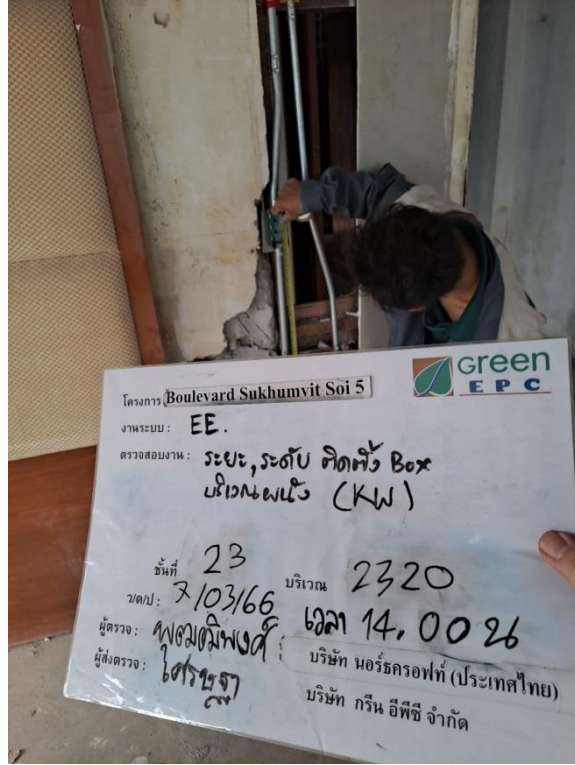 Green
EPC
โครงการ Boulevard Sukhumvit Soi 5
งานระบบ : EE.
ตรวจสอบงาน : ระยะ,ระดับ ติดตั้ง Box
บริเวณผนัง (KW)
ชั้นที่ 23 บริเวณ 2320
ว/ด/ป : 7/03/66 เวลา 14.00 น
ผู้ตรวจ : บริษัท นอร์ธครอฟท์ (ประเทศไทย)
ผู้ส่งตรวจ : ไศรษฐา บริษัท กรีน อีพีซี จำกัด